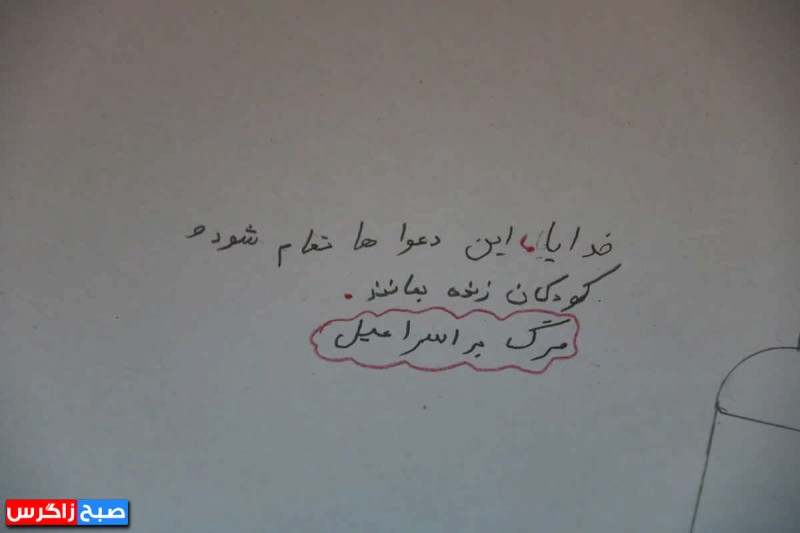 خدایا، این دعوا ها تمام شود و
کودکان زنده بمانند.
مرگ بر اسراعیل
صبح زاگرس